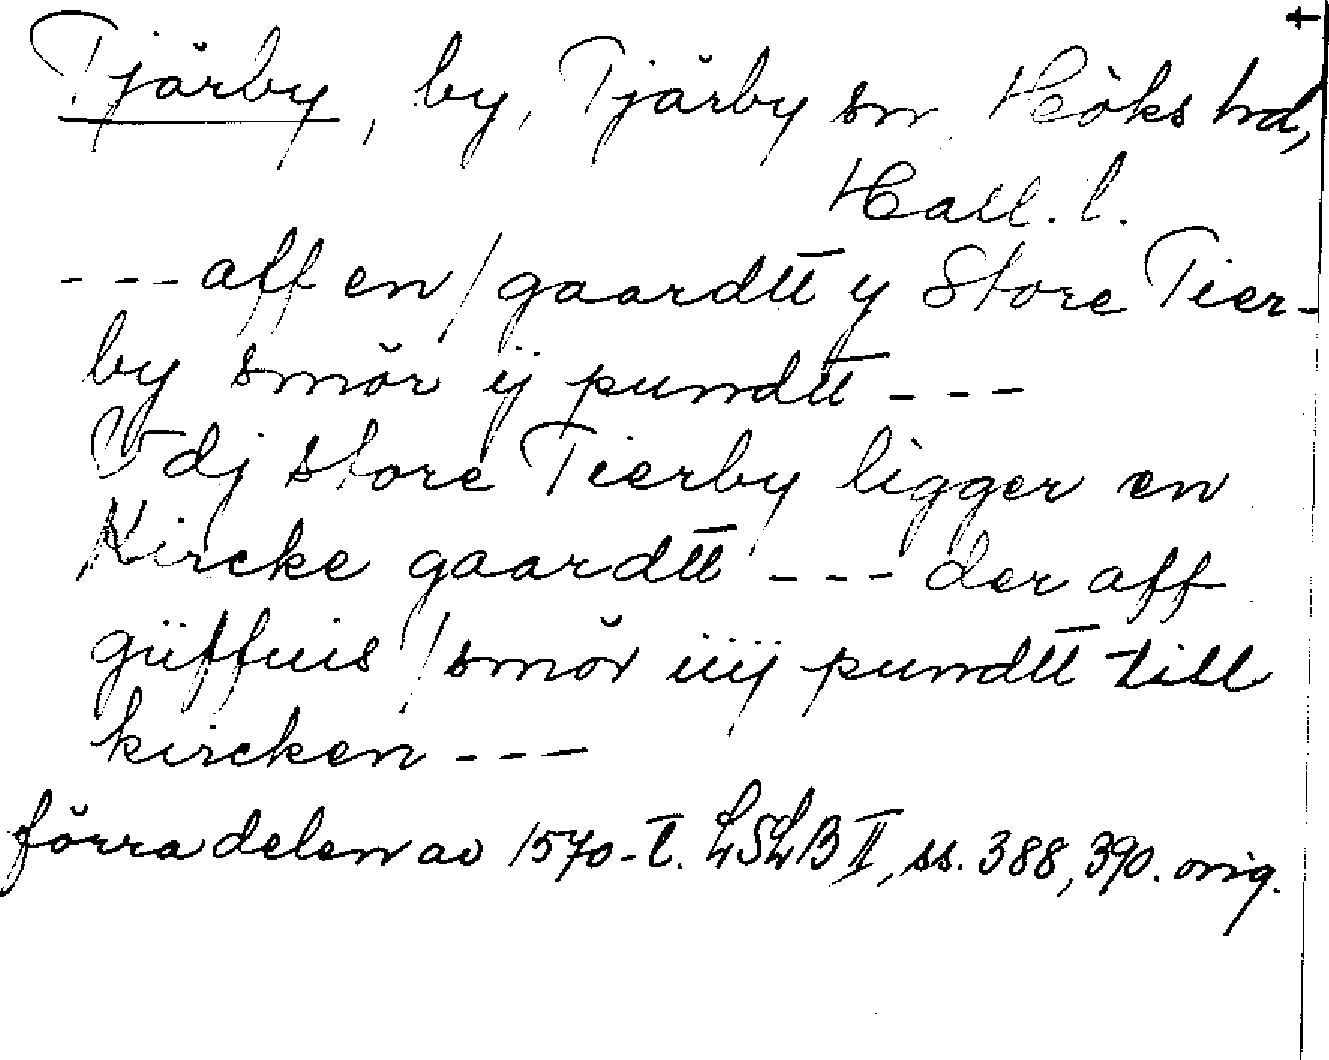 †
Tjärby, by, Tjärby sn, Höks hd,
Hall. l.
--- aff en / gaardtt y Store Tier-
by smör ÿ pundtt ---
Vdj store Tierby ligger en
Kircke gaardtt --- der aff
giiffuis / smör iiij pundtt till
kircken ---
förra delen av 1570-t. LSLB II, ss. 388, 390. orig.